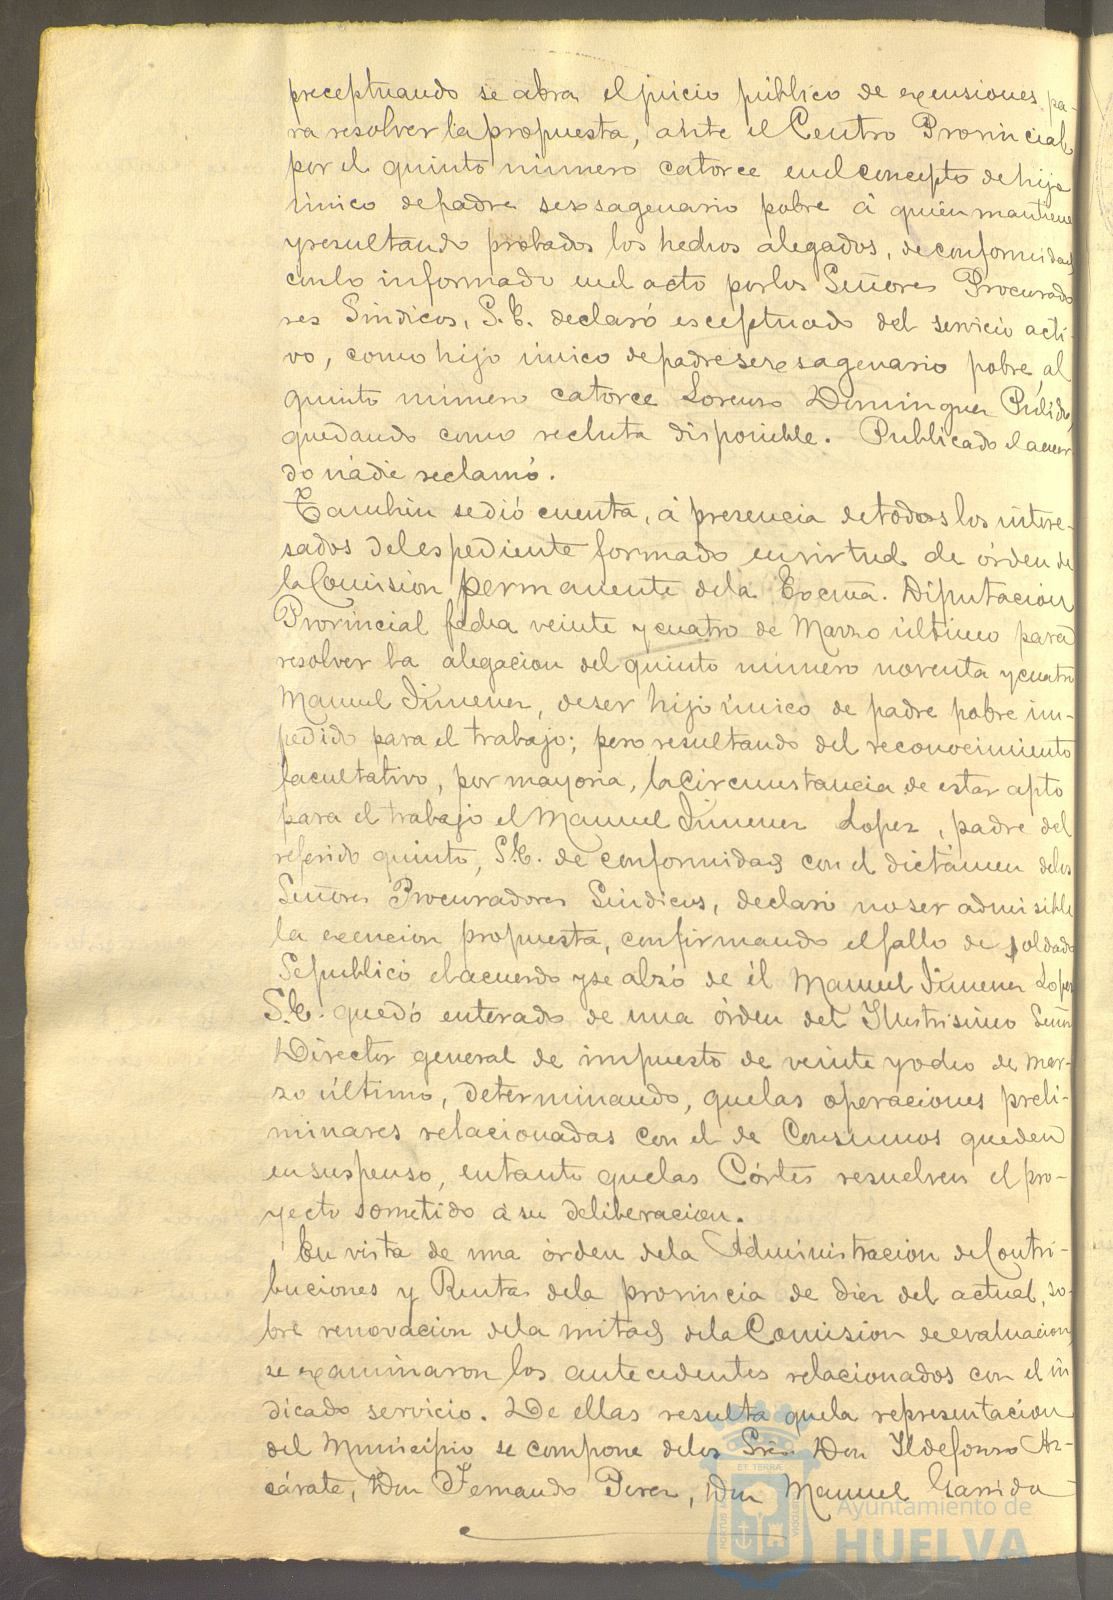 preceptuando se abra el juicio público de exensiones pa-
ra resolver la propuesta, ante el Centro Provincial,
por el quinto número catorce en el concepto de hijo
único de padre sexsagenario pobre á quién mantiene
y resultando probados los hechos alegados, de conformidad
con lo informado en el acto por los Señores Procurado
res Sindicos, S.E. declaró esceptuado del servicio acti-
vo, como hijo único de padre sexsagenario pobre, al
quinto número catorce Lorenzo Dominguez Pulido,
quedando como recluta disponible. Publicado el acuer
do nádie reclamó.
Tambien se dió cuenta, á presencia de todos los intere-
sados del espediente formado en virtud de órden de
la Comision permanente de la Excma. Diputacion
Provincial fecha veinte y cuatro de Marzo último para
resolver la alegacion del quinto número noventa y cuatro
Manuel Jimenez, de ser hijo único de padre pobre im-
pedido para el trabajo; pero resultando del reconocimiento
facultativo, por mayoria, la circunstancia de estar apto
para el trabajo el Manuel Jimenez Lopez, padre del
referido quinto, S.E. de conformidad con el dictámen de los
Señores Procuradores Sindicos, declaró no ser admisible
la exencion propuesta, confirmando el fallo de soldado
Se publicó el acuerdo y se alzó de él Manuel Jimenez Lopez
S.E. quedó enterado de una órden del Ilustrisimo Señor
Director general de impuesto de veinte y ocho de Mar-
zo último, determinando, que las operaciones preli-
minares relacionadas con el de Consumos queden
en suspenso, en tanto que las Córtes resuelven el pro-
yecto sometido á su deliberacion.
En vista de una órden de la Administracion de Contri-
buciones y Rentas de la provincia de diez del actual, so-
bre renovacion de la mitad de la Comision de evaluacion,
se examinaron los antecedentes relacionados con el in
dicado servicio. De ellas resulta que la representacion
del Municipio se compone de los Sres Don Ildefonso Az-
cárate, Don Fernando Perez, Don Manuel Garrido
ET TERRÆ
Ayuntamiento de
HUELVA